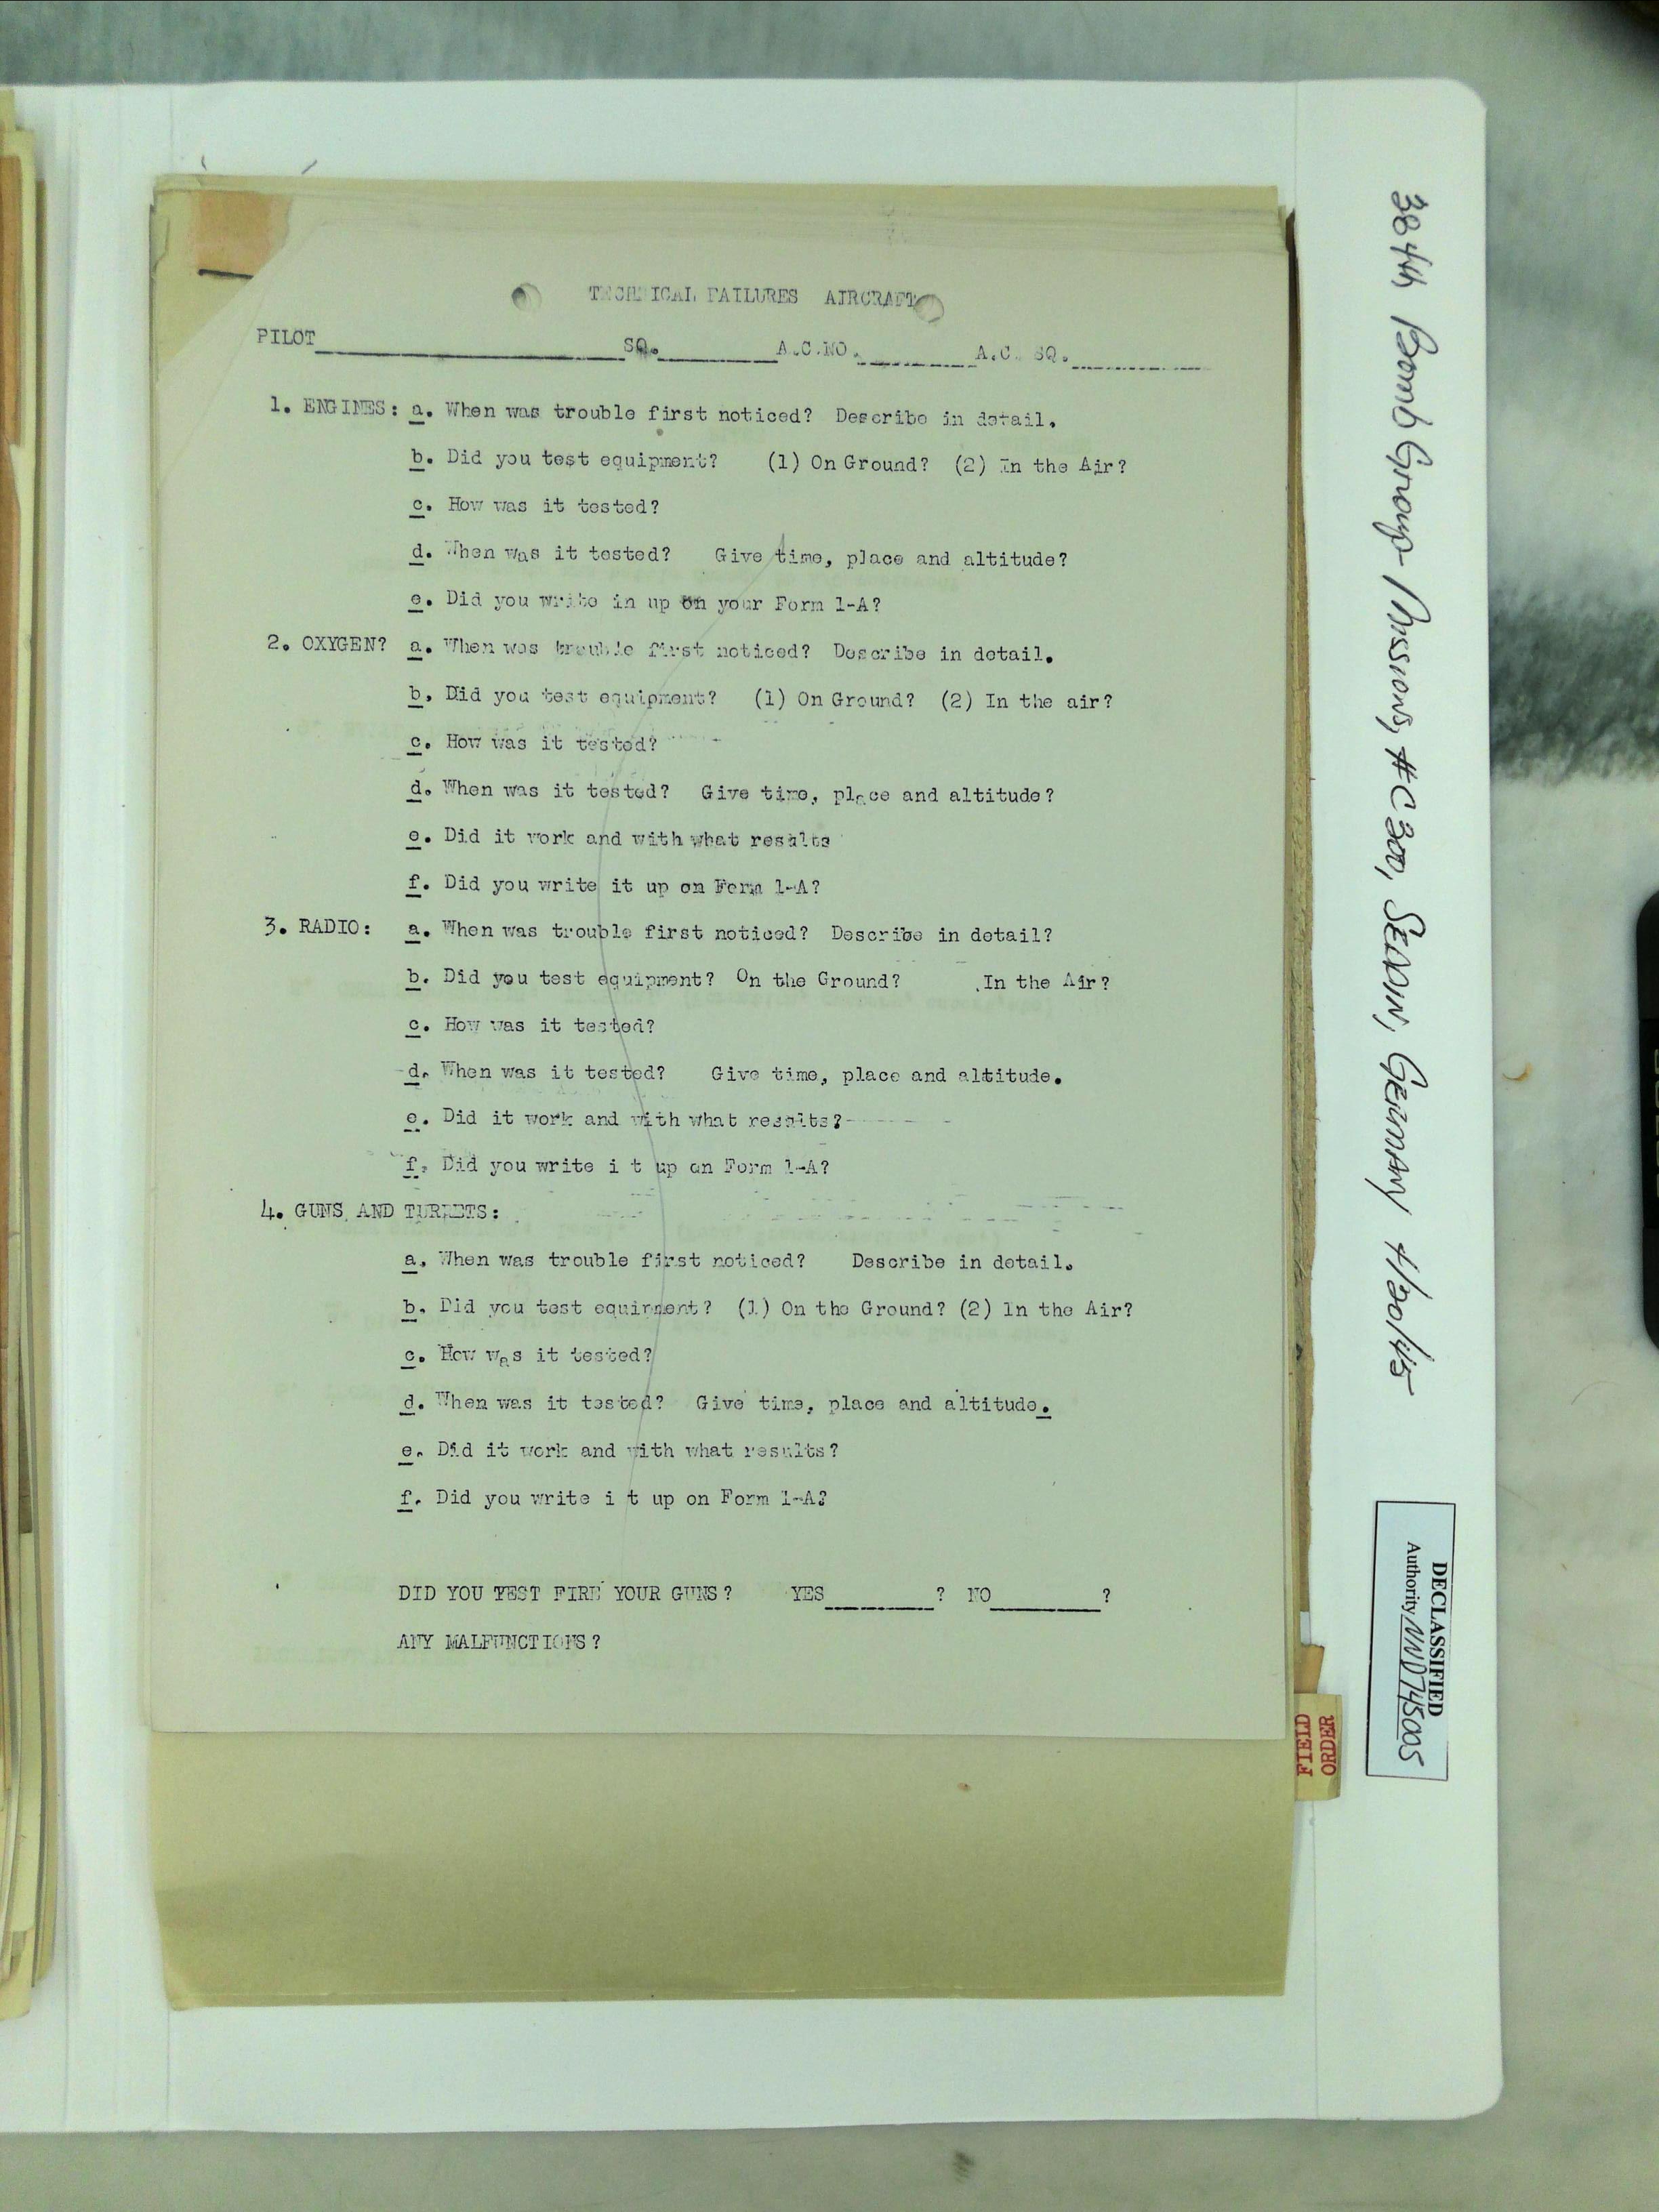 TECHNICAL FAILURES AIRCRAFT
PILOT__________ SQ.__________ A.C.NO.__________ A.C. SQ.__________
1. ENGINES: a. When was trouble first noticed? Describe in detail.
b. Did you test equipment? (1) On Ground? (2) In the Air?
c. How was it tested?
d. When was it tested? Give time, place and altitude?
e. Did you write in up on your Form 1-A?
2. OXYGEN? a. When was trouble first noticed? Describe in detail.
b. Did you test equipment? (1) On Ground? (2) In the air?
c. How was it tested?
d. When was it tested? Give time, place and altitude?
e. Did it work and with what results
f. Did you write it up on Form 1-A?
3. RADIO: a. When was trouble first noticed? Describe in detail?
b. Did you test equipment? On the Ground? In the Air?
c. How was it tested?
d. When was it tested? Give time, place and altitude.
e. Did it work and with what results?
f. Did you write i t up on Form 1-A?
4. GUNS AND TURRETS:
a. When was trouble first noticed? Describe in detail.
b. Did you test equipment? (1) On the Ground? (2) In the Air?
c. How was it tested?
d. When was it tested? Give time, place and altitude.
e. Did it work and with what results?
f. Did you write i t up on Form 1-A?
DID YOU TEST FIRE YOUR GUNS? YES__________? NO__________?
ANY MALFUNCTIONS?
FIELD
ORDER
384th Bomb Group- Missions, #C300, Germany 4/20/45
DECLASSIFIED
Authority NND745005